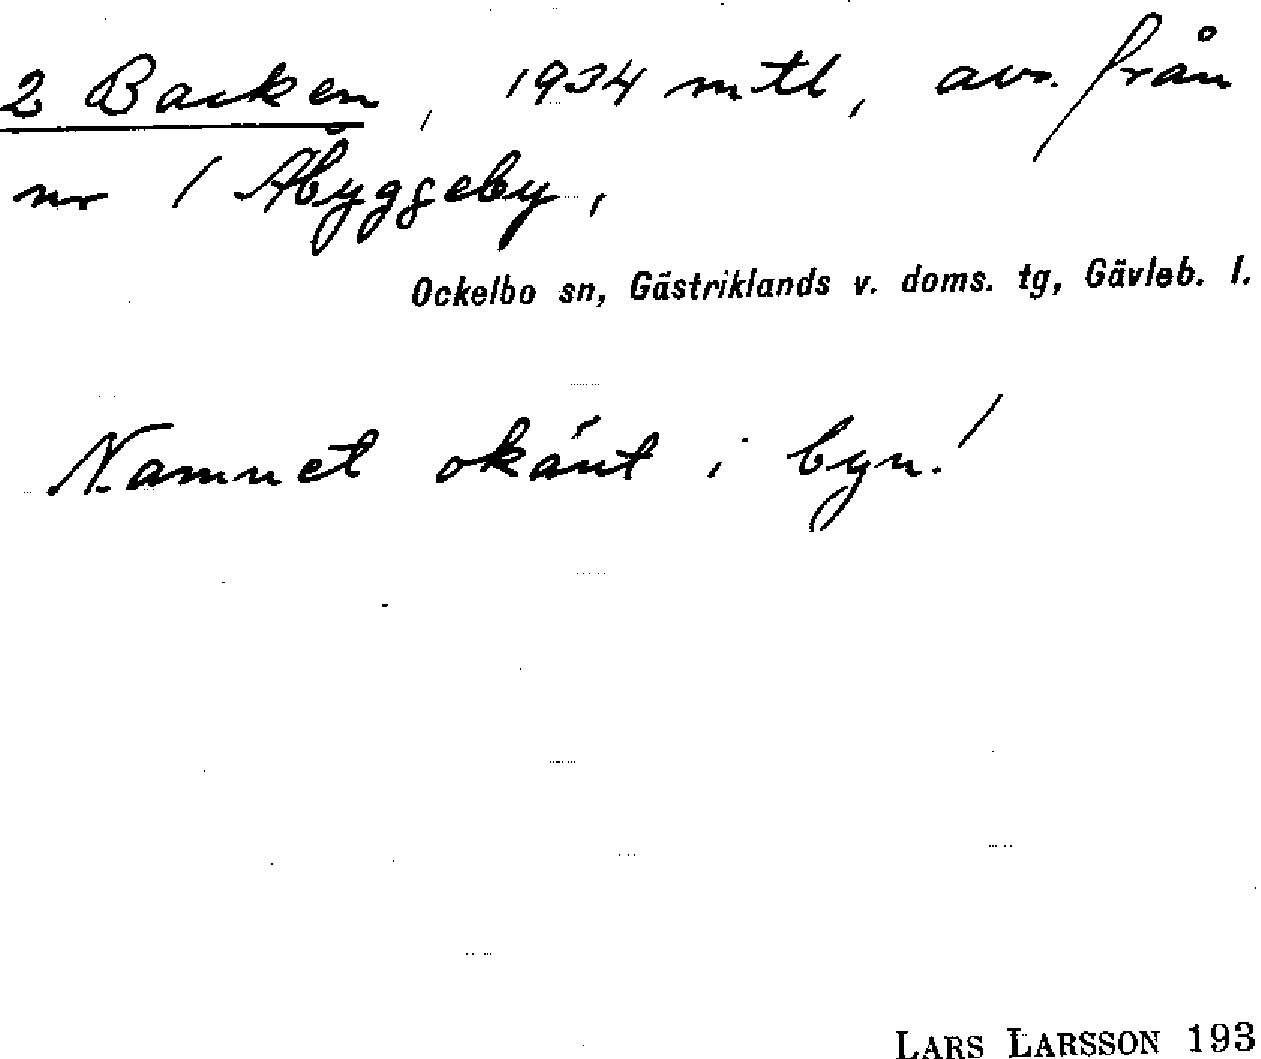 2 Backen, 1934 mtl, avs. från
nr 1 Åbyggeby,
Ockelbo sn, Gästriklands v. doms. tg, Gävleb. l.
Namnet okänt i byn!
LARS LARSSON 193